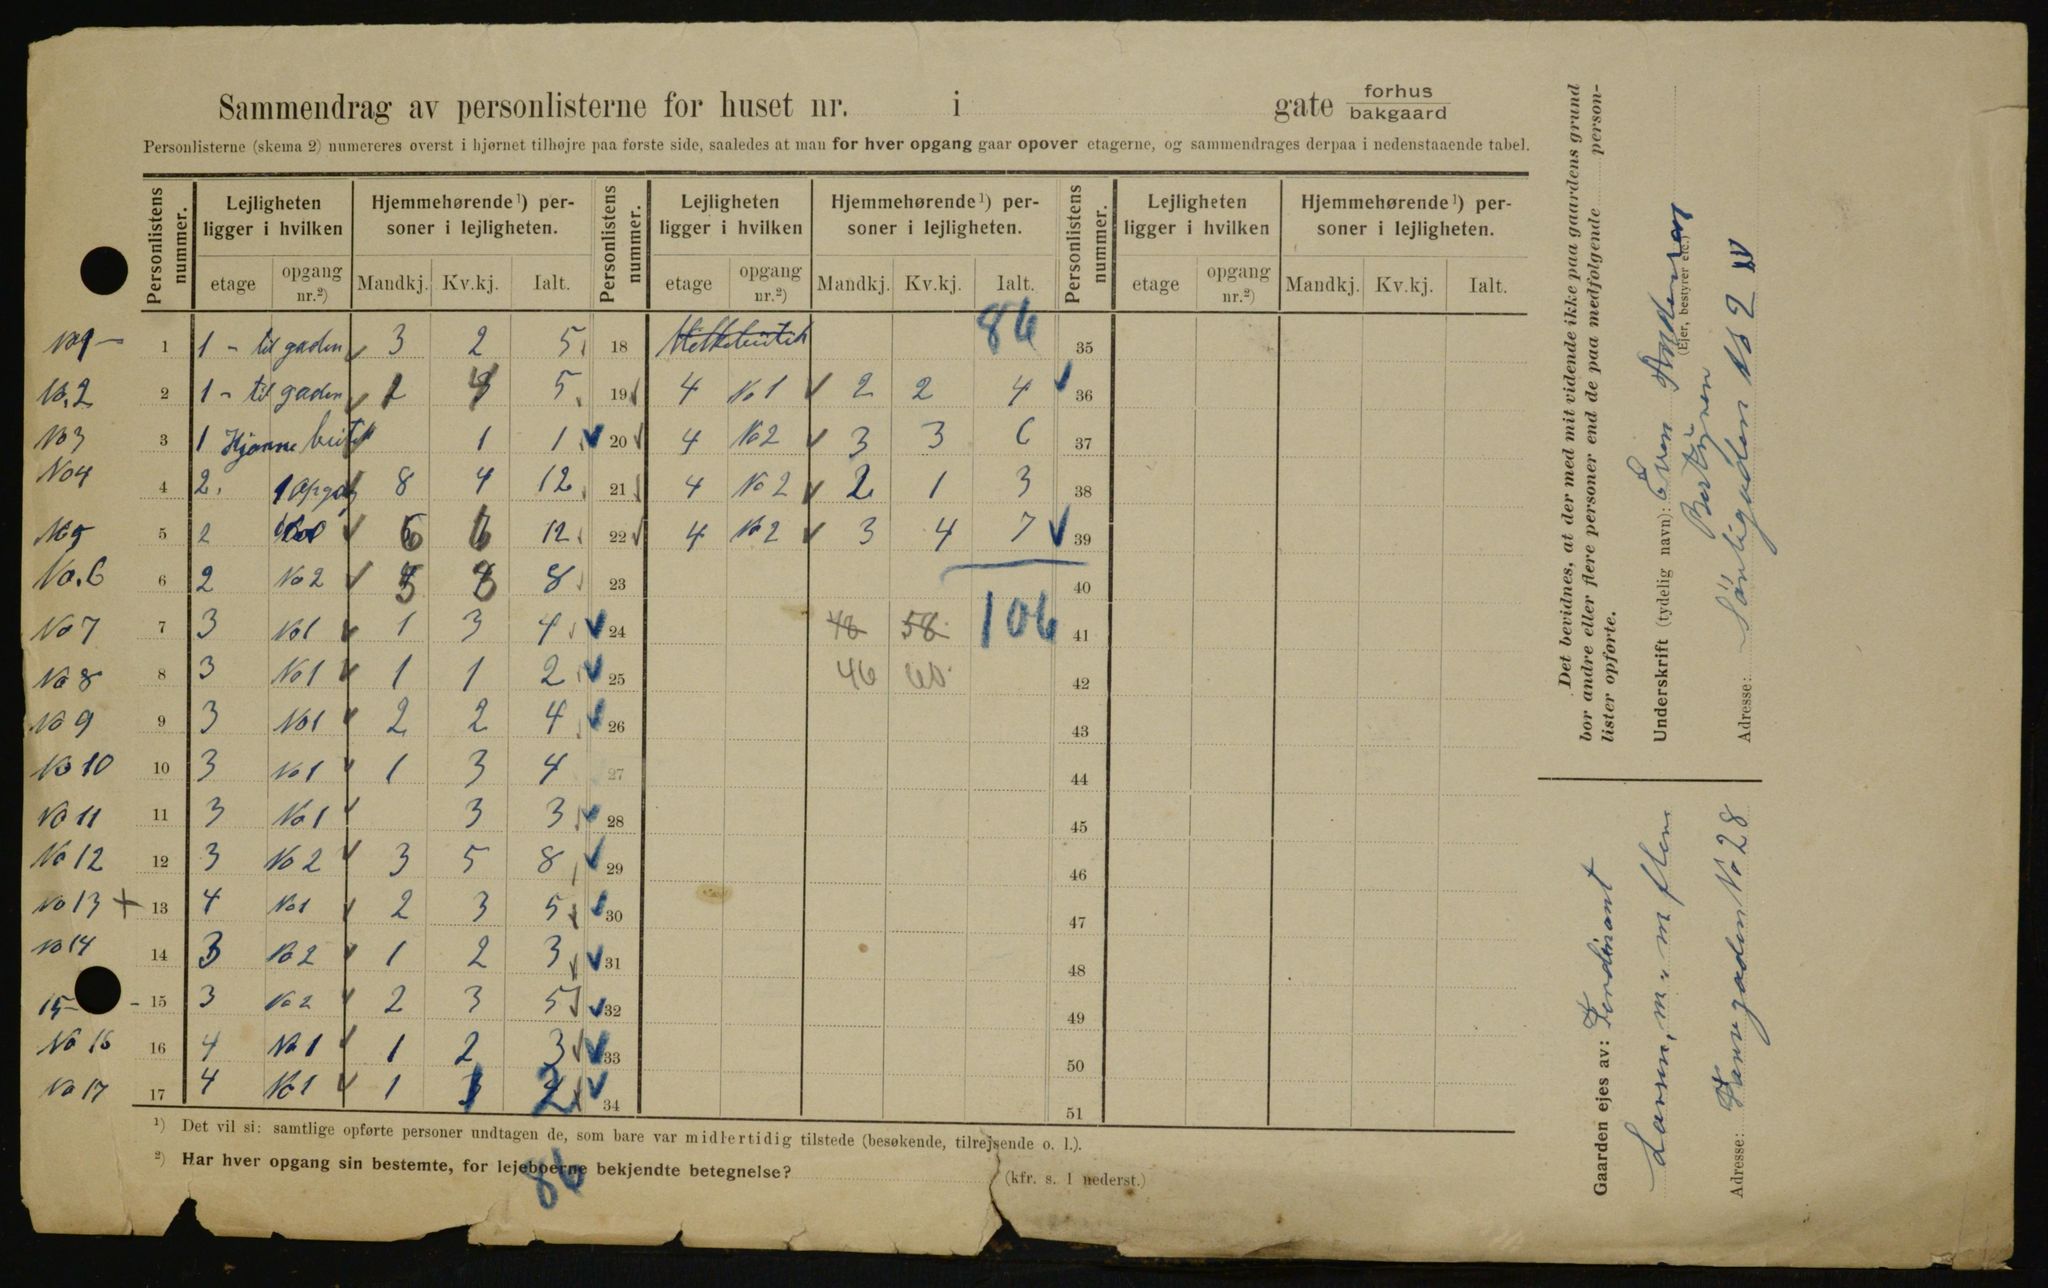 Sammendrag av personlisterne for huset nr. i gate forhus bakgaard
Personlisterne (skema 2) numereres øverst i hjørnet tilhøjre paa første side, saaledes at man for hver opgang gaar opover etagerne, og sammendrages derpaa i nedenstaaende tabel.
Personlistens nummer. Lejligheten ligger i hvilken Hjemmehørende¹) personer i lejligheten. Personlistens nummer. Lejligheten ligger i hvilken Hjemmehørende¹) personer i lejligheten. Personlistens nummer. Lejligheten ligger i hvilken Hjemmehørende¹) personer i lejligheten.
etage opgang nr.²) Mandkj. Kv.kj. Ialt. etage opgang nr.²) Mandkj. Kv.kj. Ialt. etage opgang nr.²) Mandkj. Kv.kj. Ialt.
No 1 1 1 - til gaden 3 2 5 18 86 35
No. 2 2 1 - til gaden 5 19 4 No 1 2 2 4 36
No 3 3 1 Hjørne 1 1 20 4 No 2 3 3 6 37
No 4 4 2. 1 8 4 12 21 4 No 2 2 1 3 38
No 5 5 2 6 6 12 22 4 No 2 3 4 7 39
No. 6 6 2 No 2 5 3 8 23 40
No 7 7 3 No 1 1 3 4 24 48 58 106 41
No 8 8 3 No 1 1 1 2 25 46 60 42
No 9 9 3 No 1 2 2 4 26 43
No 10 10 3 No 1 1 3 4 27 44
No 11 11 3 No 1 3 3 28 45
No 12 12 3 No 2 3 5 8 29 46
No 13 + 13 4 No 1 2 3 5 30 47
No 14 14 3 No 2 1 2 3 31 48
15 - 15 3 No 2 2 3 5 32 49
No 16 16 4 No 1 1 2 3 33 50
No 17 17 4 No 1 1 1 2 34 51
¹) Det vil si: samtlige opførte personer undtagen de, som bare var midlertidig tilstede (besøkende, tilrejsende o. l.).
²) Har hver opgang sin bestemte, for lejeboerne bekjendte betegnelse? (kfr. s. 1 nederst.)
86
Det bevidnes, at der med mit vidende ikke paa gaardens grund
bor andre eller flere personer end de paa medfølgende personlister opførte.
Underskrift (tydelig navn): Even Andersen
(Ejer, bestyrer etc.)
Bestyrer
Adresse: No 2 IV
Gaarden ejes av: Ferdinant
Larsen, m. m. flere
Adresse: No 28